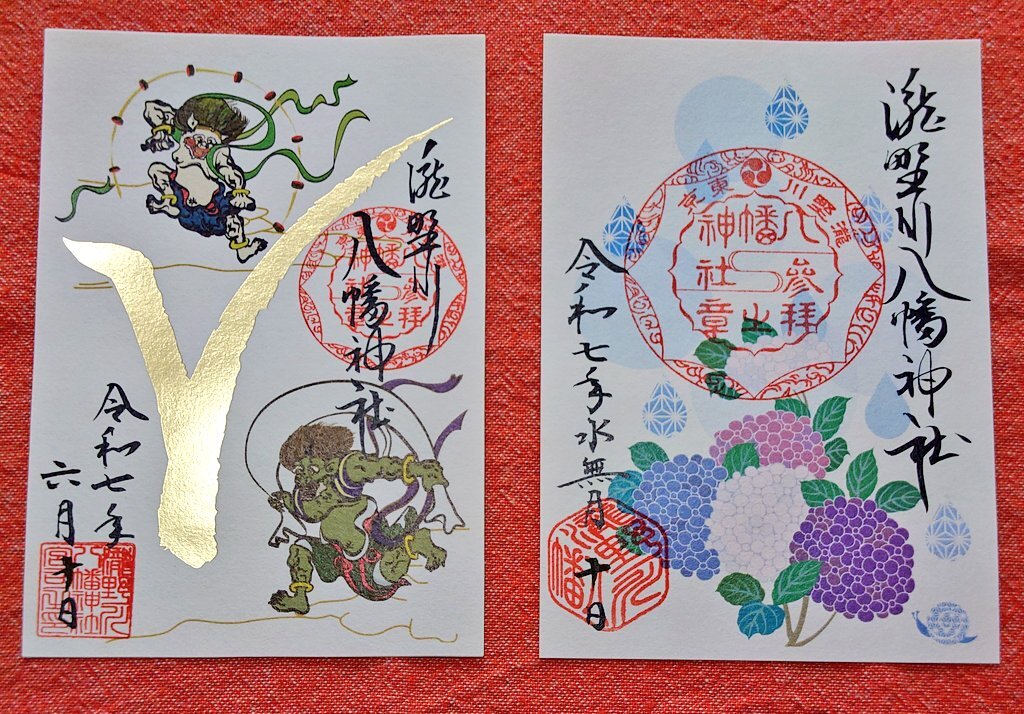 瀧野川
八幡神社
Y
令和七年
六月十日
瀧野川八幡神社
東京
瀧野川
八幡神社
參拜之章
令和七年水無月十日